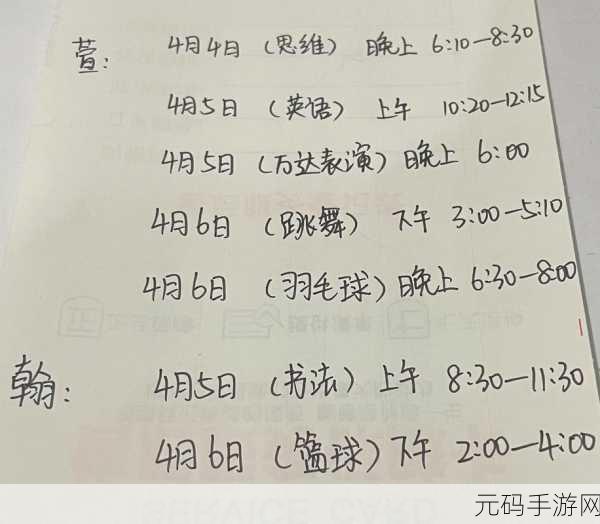 萱: 4月4日 (思维) 晚上 6:10—8:30
4月5日 (英语) 上午 10:20—12:15
4月5日 (万达表演) 晚上 6:00
4月6日 (跳舞) 下午 3:00—5:10
4月6日 (羽毛球) 晚上 6:30—8:00
翰: 4月5日 (书法) 上午 8:30—11:30
4月6日 (篮球) 下午 2:00—4:00
元码手游网